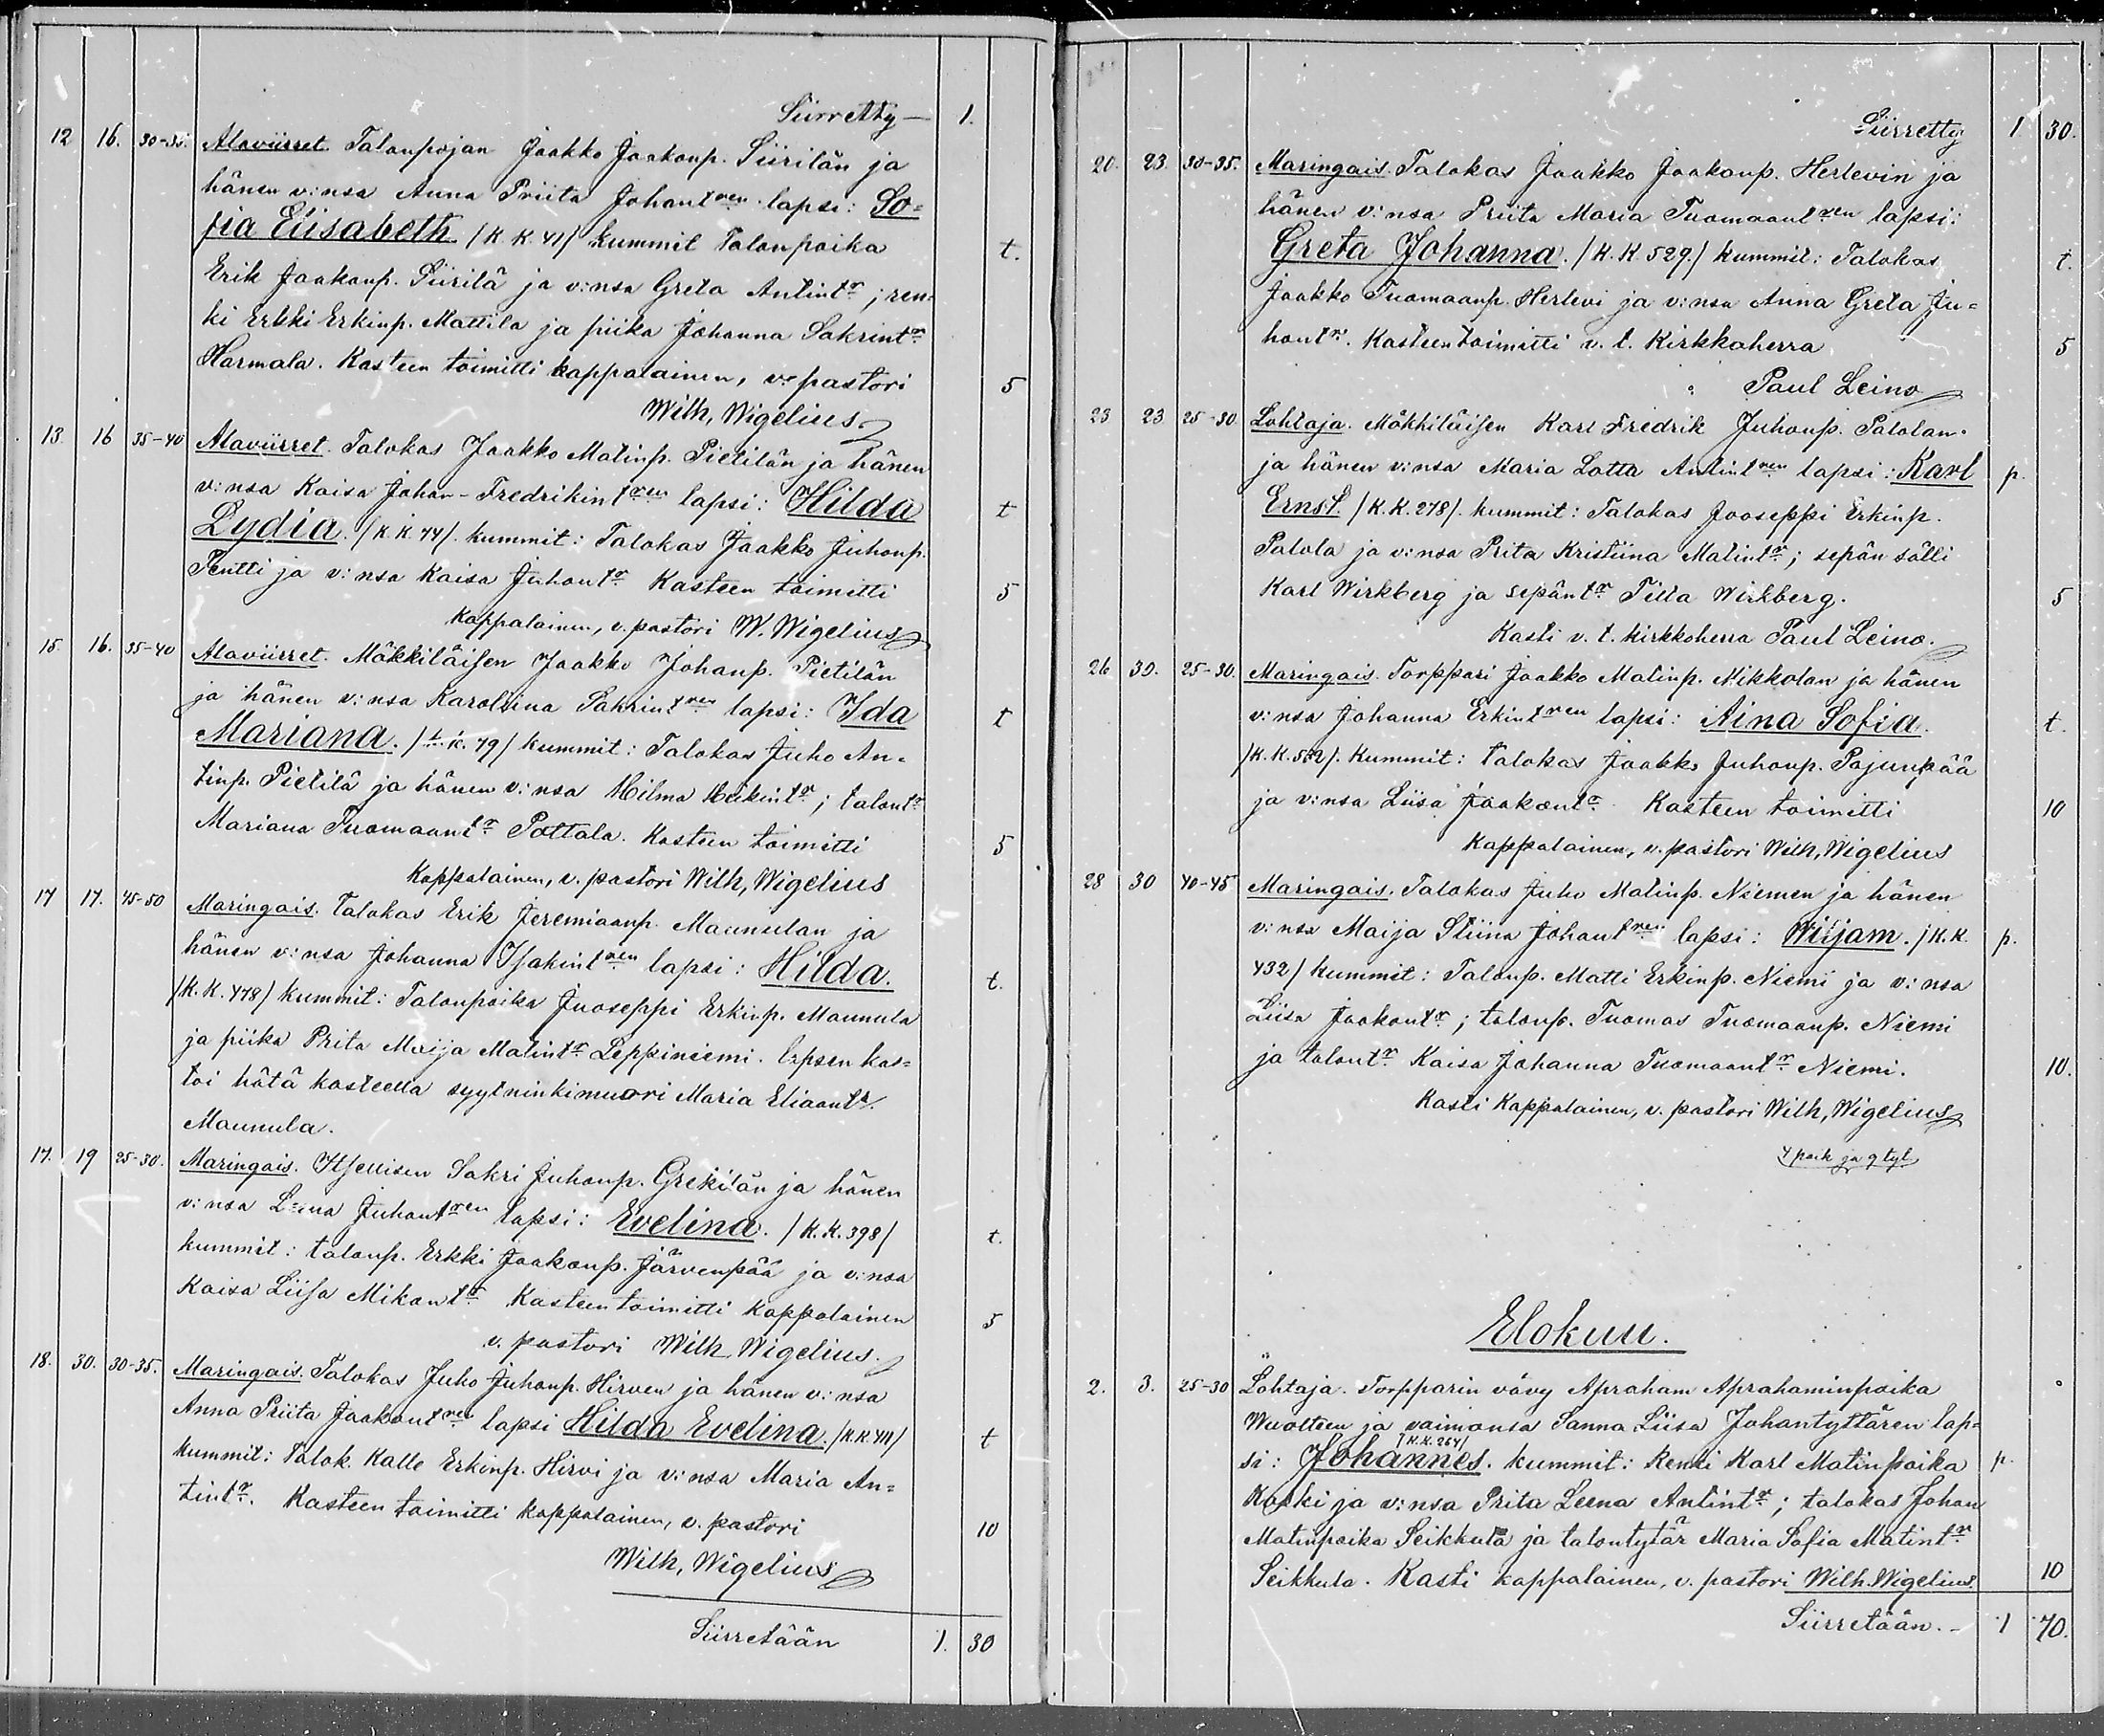 Siirretty — 1.
12 16. 30-35. Alaviirret. Talonpojan Jaakko Jaakonp. Siirilän ja
hänen v:nsa Anna Priita Johantren lapsi: So=
fia Elisabeth. /K. K. 41/ kummit Talonpoika t.
Erik Jaakonp. Siirilä ja v:nsa Greta Antintr; ren-
ki Erkki Erkinp. Mattila ja piika Johanna Sakrintr
Harmala. Kasteen toimitti kappalainen, v. pastori 5
Wilh, Wigelius
13. 16 35-40 Alaviirret. Talokas Jaakko Matinp. Pietilän ja hänen
v:nsa Kaisa Johan-Fredrikintren lapsi: Hilda t
Lydia. /K. K. 44/. kummit: Talokas Jaakko Juhonp.
Pentti ja v:nsa Kaisa Juhontr Kasteen toimitti 5
Kappalainen, v. pastori W. Wigelius
15. 16. 35-40 Alaviirret. Mökkiläisen Jaakko Johanp. Pietilän
ja hänen v:nsa Karoliina Sakrintren lapsi: Ida t
Mariana. /K. K. 49/ kummit: Talokas Juho An-
tinp. Pietilä ja hänen v:nsa Hilma Heikintr; talontr
Mariana Tuomaantr Pottala. Kasteen toimitti 5
Kappalainen, v. pastori Wilh, Wigelius
17 17. 45-50 Maringais. Talokas Erik Jeremiaanp. Maunulan ja
hänen v:nsa Johanna Isakintren lapsi: Hilda. t.
/K. K. 478/ kummit: Talonpoika Juoseppi Erkinp. Maunula
ja piika Prita Maija Matintr Leppiniemi. lapsen kas=
toi hätä kasteella syytninkimuori Maria Eliaantr.
Maunula.
17. 19 25-30. Maringais. Itsellisen Sakri Juhonp. Grekilän ja hänen
v:nsa Leena Juhontren lapsi: Evelina. /K. K. 398/ t.
kummit: talonp. Erkki Jaakonp. Järvenpää ja v:nsa
Kaisa Liisa Mikontr Kasteen toimitti Kappalainen 5
v. pastori Wilh, Wigelius.
18. 30. 30-35. Maringais. Talokas Juho Juhonp. Hirven ja hänen v:nsa
Anna Priita Jaakontren lapsi Hilda Evelina. t
kummit: Talok. Kalle Erkinp. Hirvi ja v:nsa Maria An=
tintr. Kasteen toimitti kappalainen, v. pastori 10
Wilh, Wigelius
Siirretään 1. 30
Siirretty 1 30.
20. 23. 30-35. Maringais. Talokas Jaakko Jaakonp. Herlevin ja
hänen v:nsa Priita Maria Tuomaantren lapsi:
Greta Johanna. /K. K. 529./ kummit: Talokas t.
Jaakko Tuomaanp. Herlevi ja v:nsa Anna Greta Ju=
hontr. Kasteen toimitti v. t. Kirkkoherra 5
Paul Leino
23 23 25-30. Lohtaja. Mökkiläisen Karl Fredrik Juhonp. Palolan
ja hänen v:nsa Maria Lotta Antintren lapsi: Karl p.
Ernst. /K. K. 278/. kummit: Talokas Jooseppi Erkinp.
Palola ja v:nsa Prita Kristiina Matintr; sepän sälli
Karl Wirkberg ja sepäntr Tilla Wirkberg. 5
Kasti v. t. kirkkoherra Paul Leino.
26 30. 25-30. Maringais. Torppari Jaakko Matinp. Mikkolan ja hänen
v:nsa Johanna Erkintren lapsi: Aina Sofia. t.
kummit: Talokas Jaakko Juhonp. Pajunpää
ja v:nsa Liisa Jaakontr Kasteen toimitti 10
Kappalainen, v. pastori Wilh, Wigelius
28 30 40-45 Maringais. Talokas Juho Matinp. Niemen ja hänen
v:nsa Maija Stiina Johantren lapsi: Wiljam. /K. K. p.
432/ kummit: Talonp. Matti Erkinp. Niemi ja v:nsa
Liisa Jaakontr; talonp. Tuomas Tuomaanp. Niemi
ja talontr Kaisa Johanna Tuomaantr Niemi. 10.
Kasti Kappalainen, v. pastori Wilh, Wigelius
4 poik ja 9 tyt.
Elokuu.
2. 3. 25-30 Lohtaja. Torpparin vävy Apraham Aprahaminpoika
Wuolteen ja vaimonsa Sanna Liisa Johantyttären lap=
/K. K. 264/
si: Johannes. kummit: Renki Karl Matinpoika p.
Koski ja v:nsa Prita Leena Antintr; talokas Johan
Matinpoika Seikkula ja talontytär Maria Sofia Matintr
Seikkula. Kasti kappalainen, v. pastori Wilh. Wigelius. 10
Siirretään. 1 70.